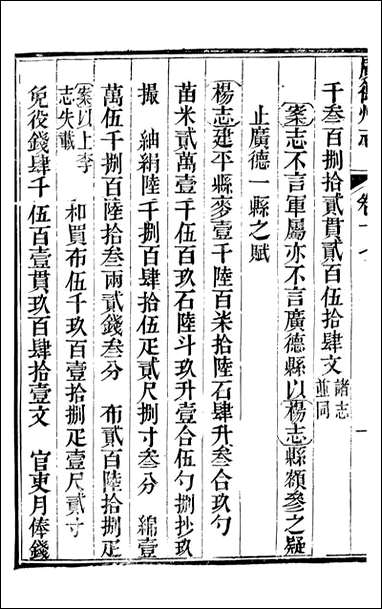 廣德州志
卷十
千叁百捌拾貳貫貳百伍拾肆文 諸志並同
案志不言軍屬亦不言廣德縣以楊志縣額參之疑
止廣德一縣之賦
楊志建平縣麥壹千陸百柒拾陸石肆升叁合玖勺
苗米貳萬壹千伍百玖石陸斗玖升壹合伍勺捌抄玖
撮　紬絹陸千捌百肆拾伍疋貳尺捌寸叁分　綿壹
萬伍千捌百陸拾叁兩貳錢叁分　布貳百陸拾捌疋
案以上李志失載　和買布伍千玖百壹拾捌疋壹尺貳寸
免役錢肆千伍百壹貫玖百肆拾壹文　官吏月俸錢